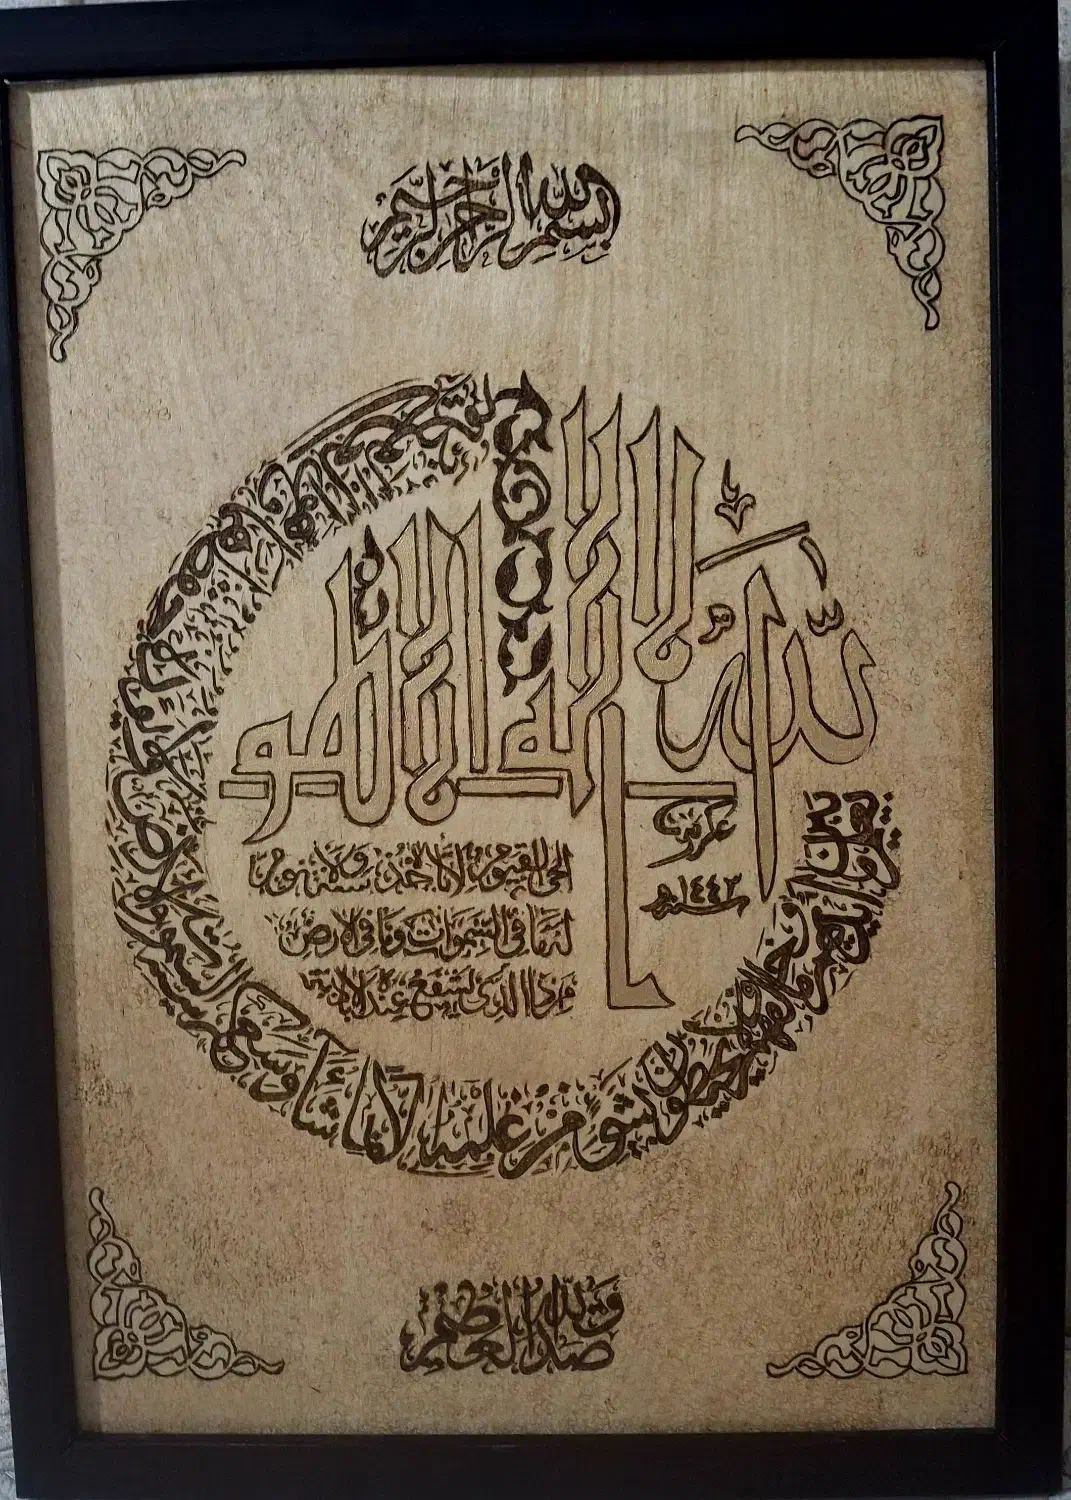 بسم الله الرحمن الرحيم
الله لا إله إلا هو
الحي القيوم لا تأخذه سنة ولا نوم
له ما في السموات وما في الأرض
من ذا الذي يشفع عنده إلا بإذنه
يعلم ما بين أيديهم وما خلفهم ولا يحيطون بشيء من علمه إلا بما شاء وسع كرسيه السموات والأرض ولا يؤده حفظهما وهو العلي العظيم
سنة ١٤٤٢هـ
صدق الله العظيم